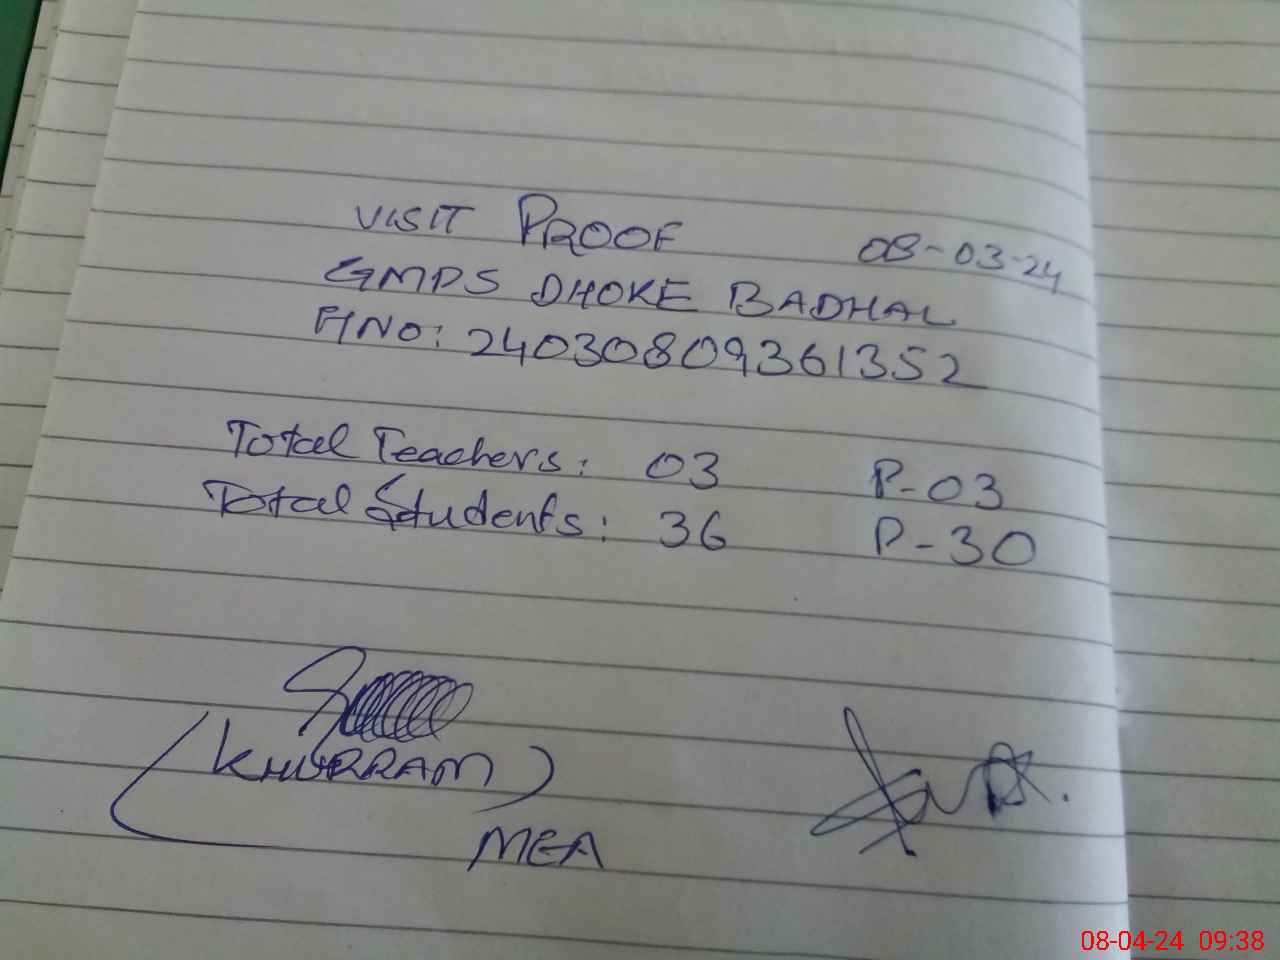 VISIT PROOF 08-03-24
GMPS DHOKE BADHAL
FI NO: 24030809361352
Total Teachers: 03 P-03
Total Students: 36 P-30
(KHURRAM)
MEA
08-04-24 09:38